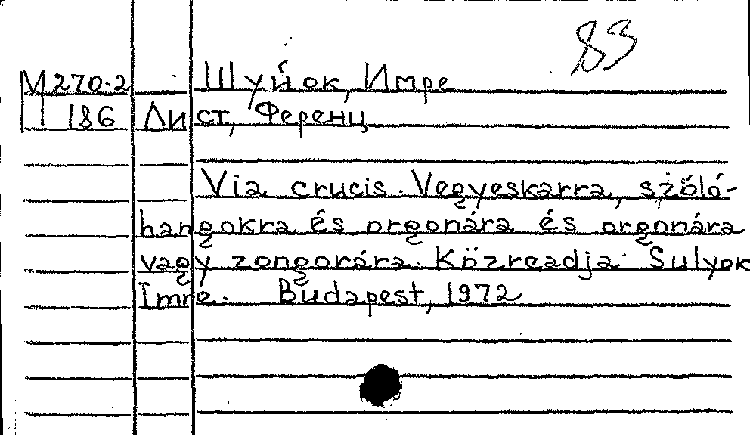 83
М270-2 Шуйок, Имре
186 Лист, Ференц
Via crucis. Vegyeskarra, szóló-
hangokra és orgonára és orgonára
vagy zongorára. Közreadja Sulyok
Imre. Budapest, 1972